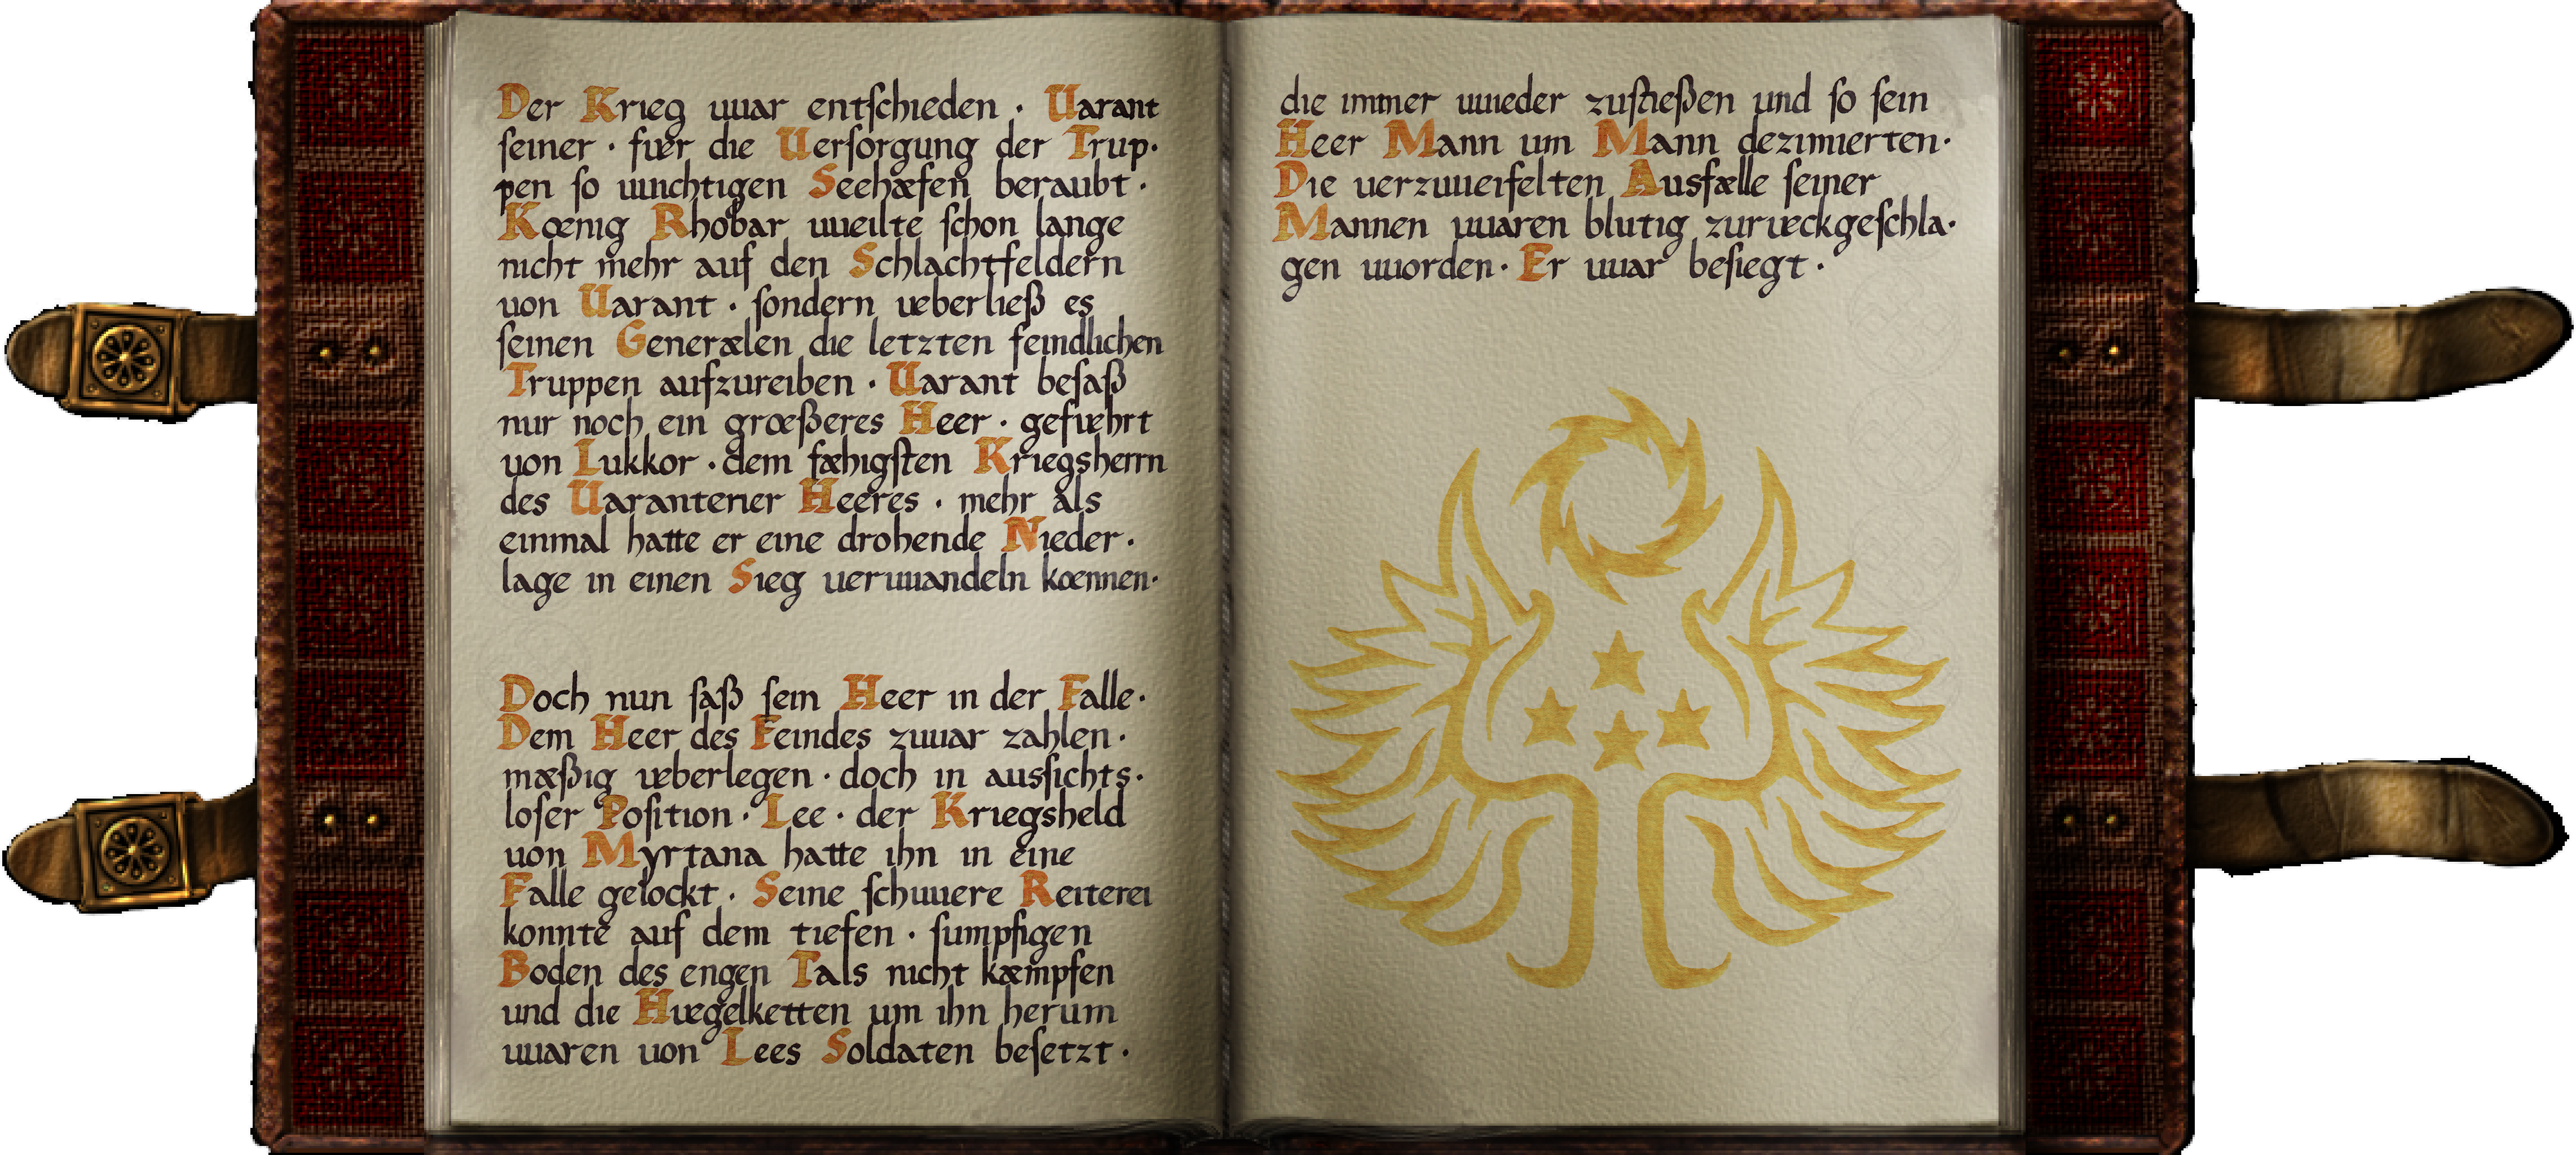 Der Krieg uuar entſchieden · Uarant
ſeiner · fuer die Uerſorgung der Trup·
pen ſo uuichtigen Seehæfen beraubt ·
Kœnig Rhobar uueilte ſchon lange
nicht mehr auf den Schlachtfeldern
uon Uarant · ſondern ueberließ es
ſeinen Generælen die letzten feindlichen
Truppen aufzureiben · Uarant beſaß
nur noch ein grœßeres Heer · gefuehrt
uon Lukkor · dem fæhigſten Kriegsherrn
des Uarantener Heeres · mehr als
einmal hatte er eine drohende Nieder·
lage in einen Sieg ueruuandeln kœnnen·
Doch nun ſaß ſein Heer in der Falle·
Dem Heer des Feindes zuuar zahlen·
mæßig ueberlegen · doch in ausſichts·
loſer Poſition · Lee · der Kriegsheld
uon Myrtana hatte ihn in eine
Falle gelockt · Seine ſchuuere Reiterei
konnte auf dem tiefen · ſumpfigen
Boden des engen Tals nicht kæmpfen
und die Huegelketten um ihn herum
uuaren uon Lees Soldaten beſetzt ·
die immer uuieder zuſtießen und ſo ſein
Heer Mann um Mann dezimierten·
Die uerzuueifelten Ausfælle ſeiner
Mannen uuaren blutig zurueckgeſchla·
gen uuorden· Er uuar beſiegt ·